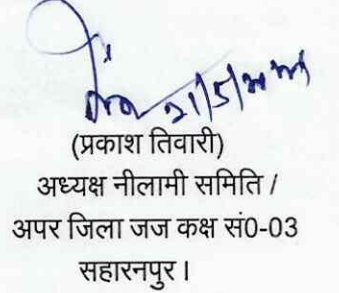 21/5/2024
(प्रकाश तिवारी)
अध्यक्ष नीलामी समिति /
अपर जिला जज कक्ष सं0-03
सहारनपुर।